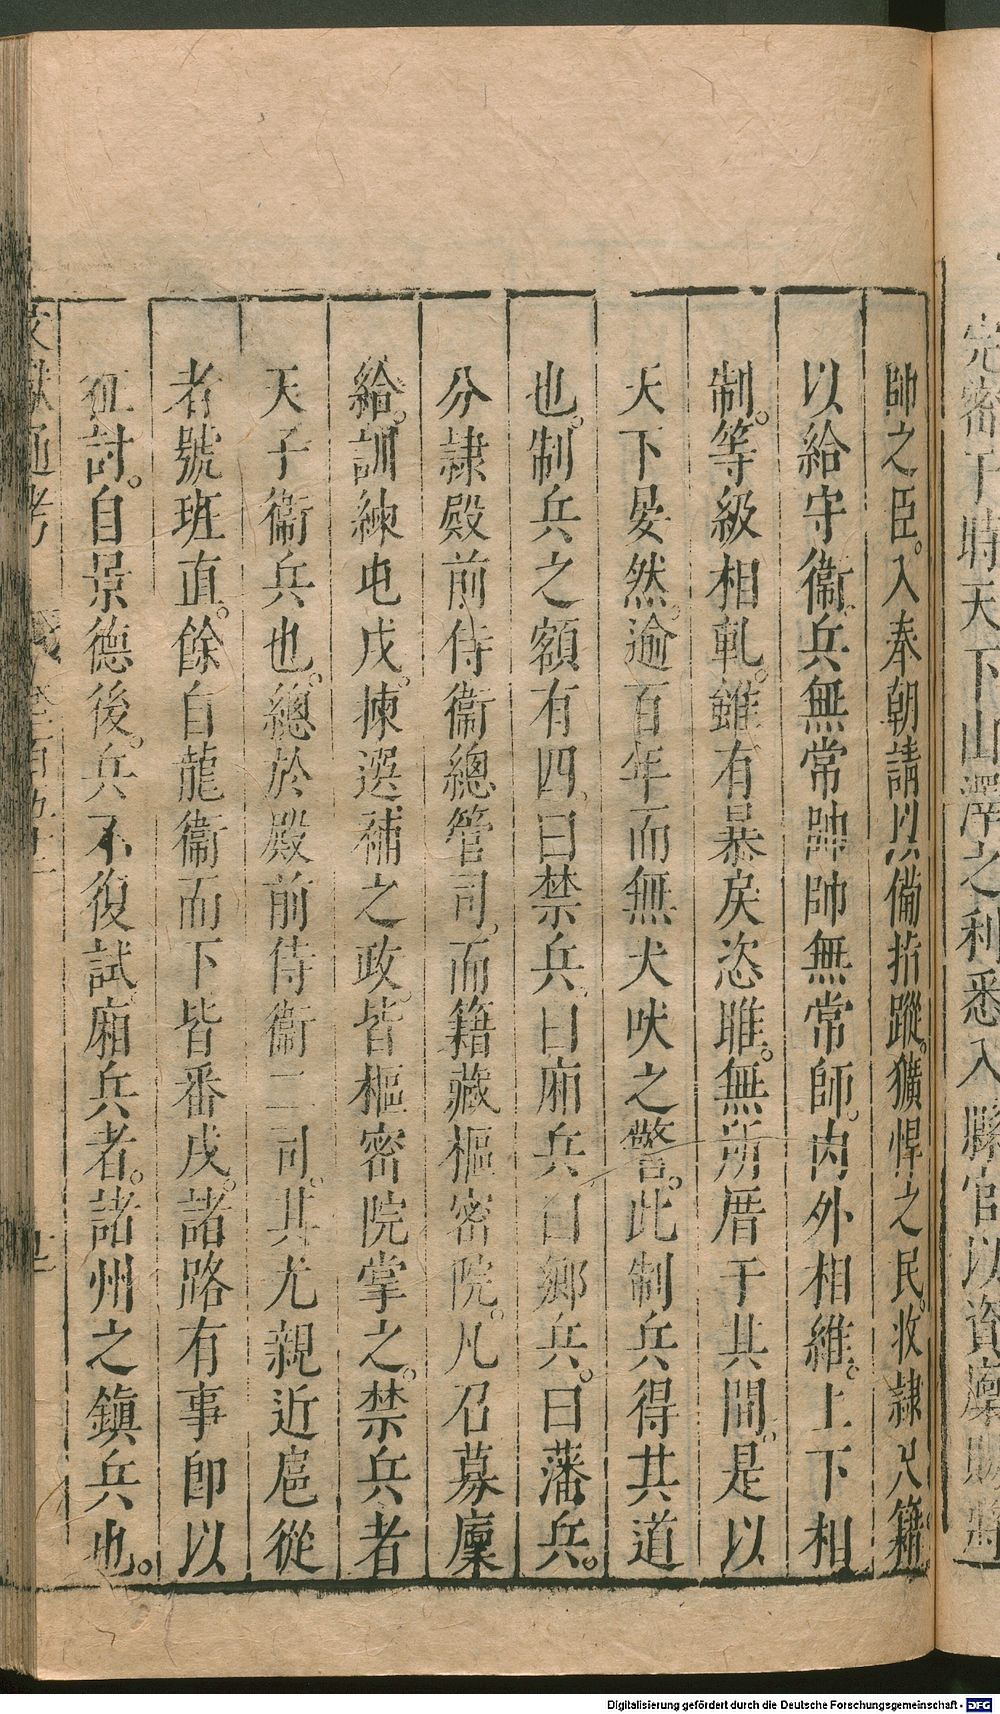 完密于時天下山澤之利悉入縣官以資廩賜將
帥之臣。入奉朝請以備指蹤。獷悍之民。收隷尺籍。
以給守衞。兵無常帥帥無常師。内外相維。上下相
制。等級相軋。雖有暴戾恣睢。無所厝于其間。是以
天下晏然。逾百年而無犬吠之警。此制兵得其道
也。制兵之額有四。曰禁兵。曰廂兵曰鄉兵。曰藩兵。
分隷殿前侍衞總管司。而籍藏樞密院。凡召募廩
給。訓練屯戍。揀選補之政。皆樞密院掌之。禁兵者
天子衞兵也。總於殿前侍衞二司。其尤親近扈從
者號班直。餘自龍衞而下皆番戍。諸路有事即以
征討。自景德後。兵不復試廂兵者。諸州之鎮兵也。
文獻通考
Digitalisierung gefördert durch die Deutsche Forschungsgemeinschaft - DFG